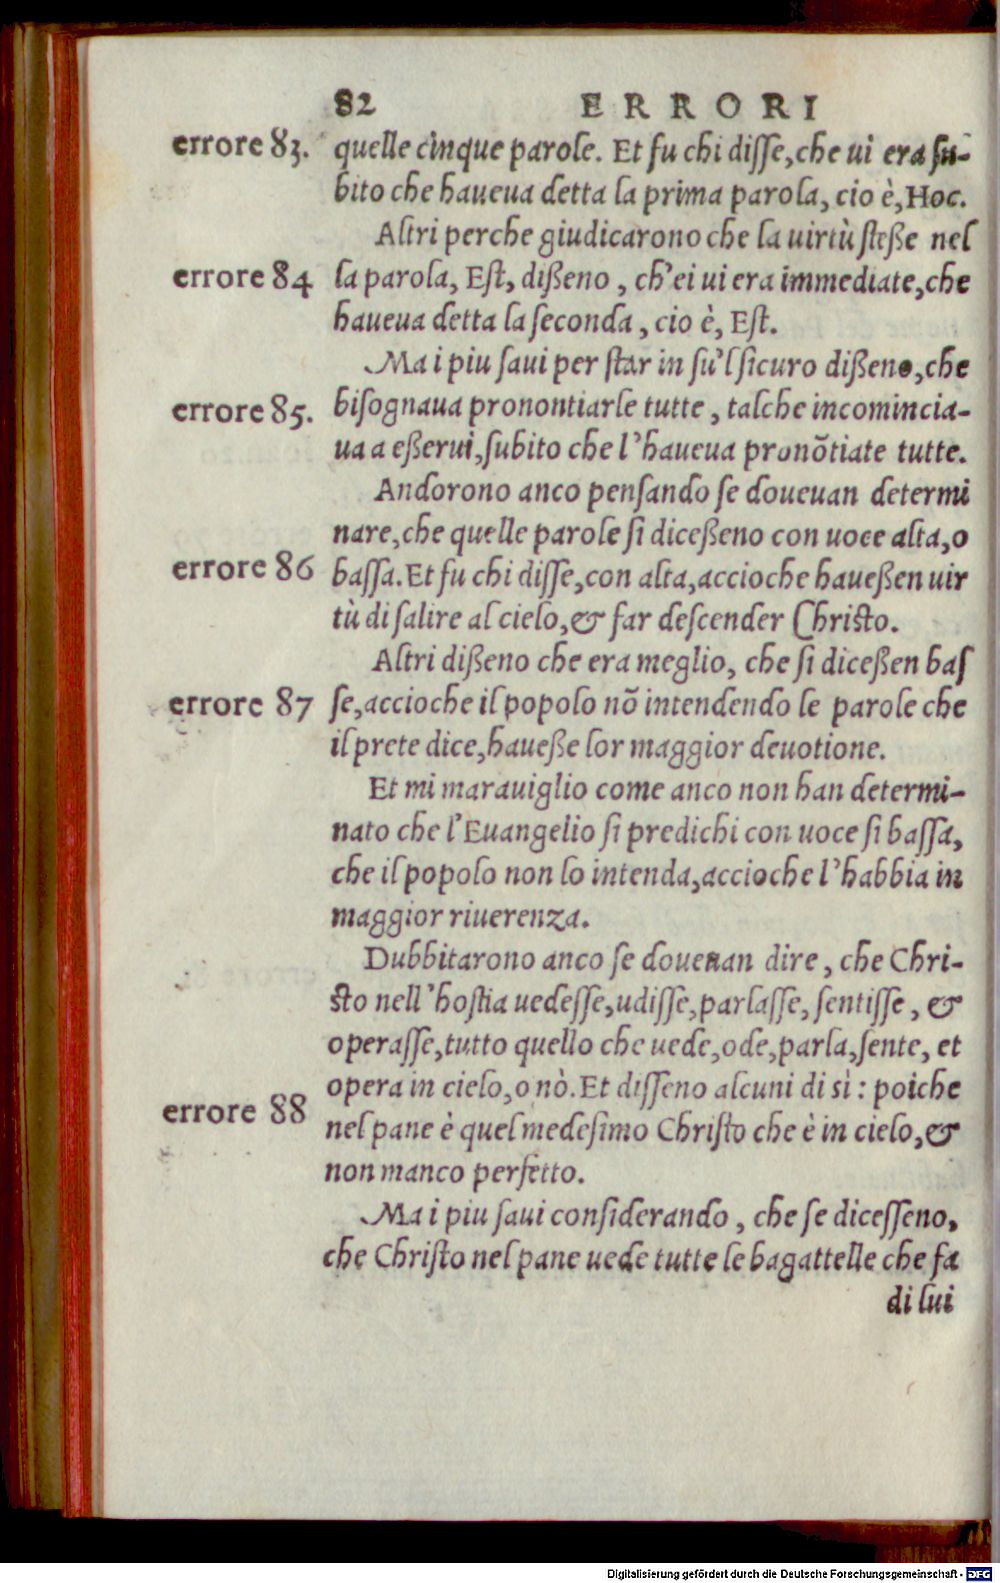 82 ERRORI
errore 83. quelle cinque parole. Et fu chi diſſe, che ui era ſu-
bito che haueua detta la prima parola, cio è, Hoc.
Altri perche giudicarono che la uirtù ſteße nel
errore 84 la parola, Eſt, dißeno, ch'ei ui era immediate, che
haueua detta la ſeconda, cio è, Eſt.
Ma i piu ſaui per ſtar in ſu'l ſicuro dißeno, che
errore 85. biſognaua pronontiarle tutte, talche incomincia-
ua a eßerui, ſubito che l'haueua pronõtiate tutte.
Andorono anco penſando ſe doueuan determi
nare, che quelle parole ſi diceßeno con uoce alta, o
errore 86 baſſa. Et fu chi diſſe, con alta, accioche haueßen uir
tù di ſalire al cielo, & far deſcender Chriſto.
Altri dißeno che era meglio, che ſi diceßen baſ
errore 87 ſe, accioche il popolo nõ intendendo le parole che
il prete dice, haueße lor maggior deuotione.
Et mi marauiglio come anco non han determi-
nato che l'Euangelio ſi predichi con uoce ſi baſſa,
che il popolo non lo intenda, accioche l'habbia in
maggior riuerenza.
Dubbitarono anco ſe doueuan dire, che Chri-
ſto nell'hoſtia uedeſſe, udiſſe, parlaſſe, ſentiſſe, &
operaſſe, tutto quello che uede, ode, parla, ſente, et
opera in cielo, o nò. Et diſſeno alcuni di sì: poiche
errore 88 nel pane è quel medeſimo Chriſto che è in cielo, &
non manco perfetto.
Ma i piu ſaui conſiderando, che ſe diceſſeno,
che Chriſto nel pane uede tutte le bagattelle che fa
di lui
Digitalisierung gefördert durch die Deutsche Forschungsgemeinschaft - DFG